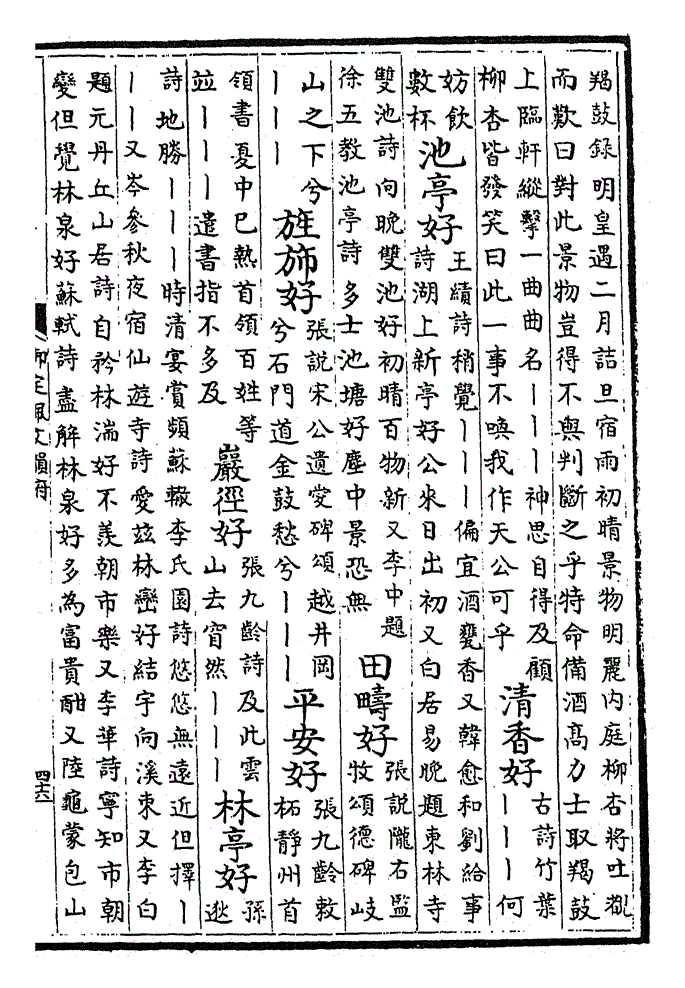 羯鼓録明皇遇二月詰旦宿雨初晴景物明麗内庭柳杏將吐覩
而歎曰對此景物豈得不與判斷之乎特命備酒髙力士取羯鼓
上臨軒縱擊一曲曲名丨丨丨神思自得及顧
柳杏皆發笑曰此一事不喚我作天公可乎
清香好
古詩竹葉
丨丨丨何
妨飲
數杯
池亭好
王績詩稍覺丨丨丨偏宜酒甕香又韓愈和劉給事
詩湖上新亭好公來日出初又白居易晚題東林寺
雙池詩向晚雙池好初晴百物新又李中題
徐五教池亭詩多士池塘好塵中景恐無
田疇好
張説隴右監
牧頌德碑岐
山之下兮
丨丨丨
旌斾好
張説宋公遺愛碑頌越井岡
兮石門道金鼓愁兮丨丨丨
平安好
張九齡敕
柘靜州首
領書夏中已熱首領百姓等
並丨丨丨遣書指不多及
巖徑好
張九齡詩及此雲
山去窅然丨丨丨
林亭好
孫
逖
詩地勝丨丨丨時清宴賞頻蘇轍李氏園詩悠悠無遠近但擇丨
丨丨又岑參秋夜宿仙遊寺詩愛兹林巒好結宇向溪東又李白
題元丹丘山居詩自矜林湍好不羨朝市樂又李華詩寧知市朝
變但覺林泉好蘇軾詩盡解林泉好多為富貴酣又陸龜蒙包山
御定佩文韻府
四六